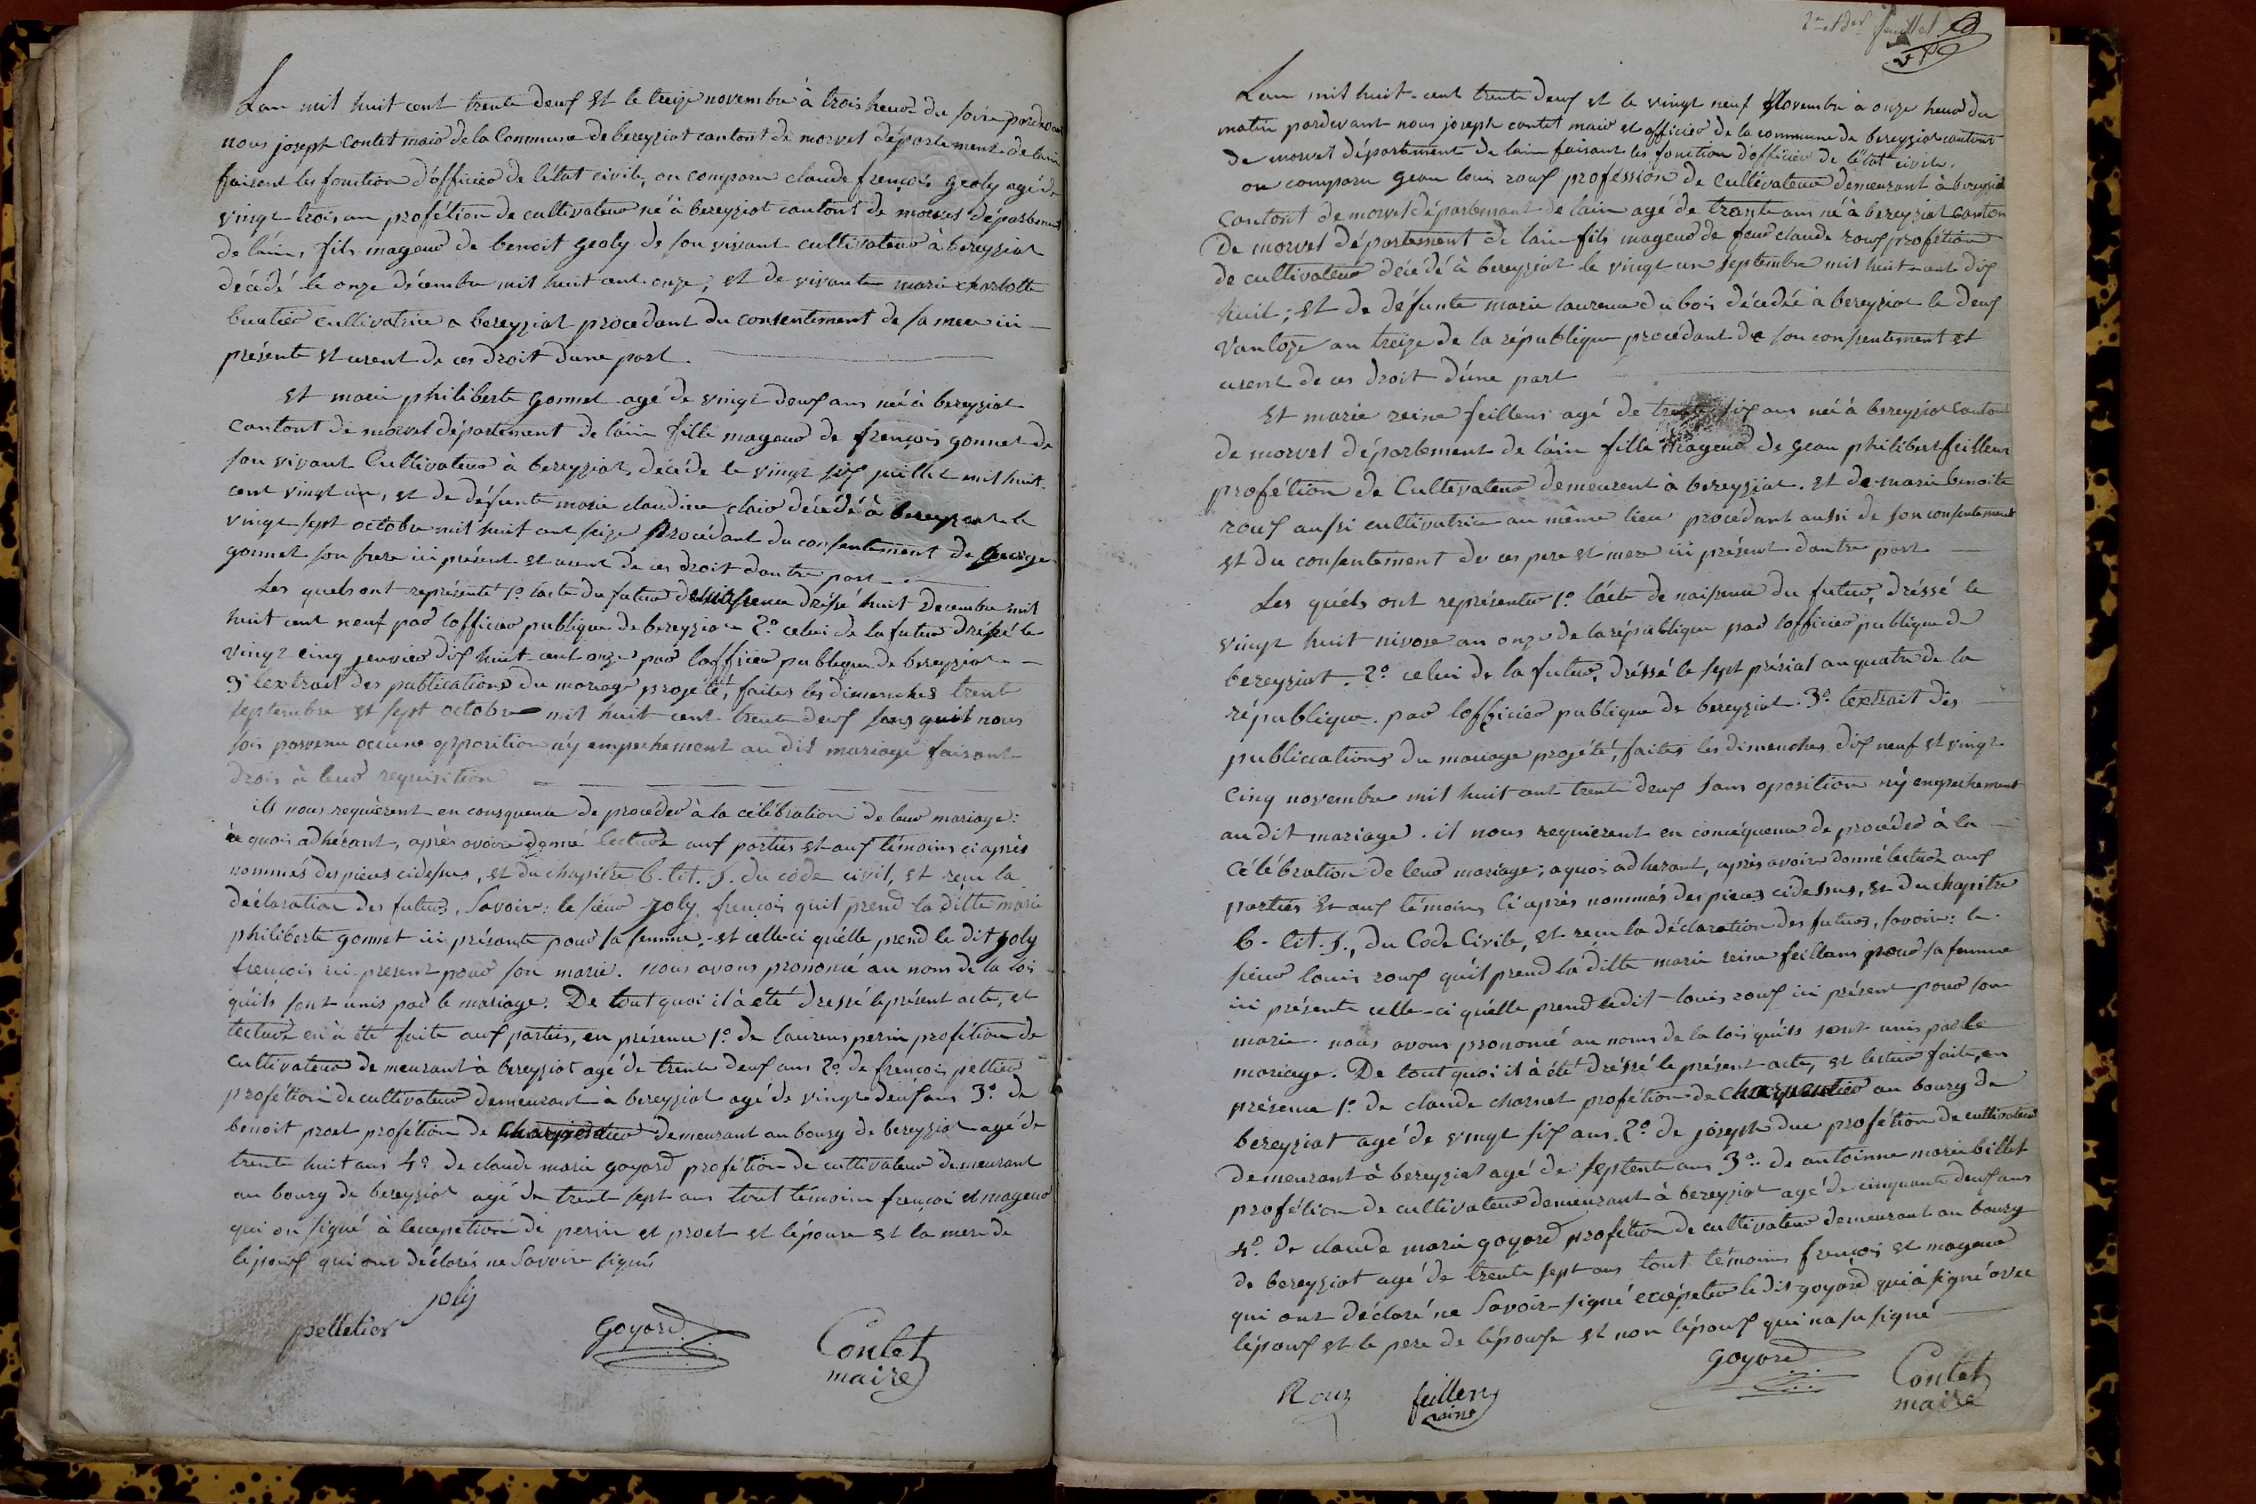 Lan mil huit cent trente deux et le treize novembre à trois heure du soire pardevant
nous joseph contet maire de la Commune de bereyziat cantont de morvel département de lain
faisent les fonction d'officier de l'état civile, on comparu claude françois geoly agé de
vingt trois an profétion de cultivateur né à bereyziat cantont de morvel département
de lain, fils mageur de benoit geoly de son vivant cultivateur à bereyziat
décédé le onze décembre mil huit cent onze; et de vivante marie charlotte
cultivatrice a bereyziat procedant du consentement de sa mere ici
présente et usent de ces droit dune part.
et marie philiberte gonnet agé de vingt deux ans né à bereyziat
cantont de morvel département de lain fille mageur de françois gonnet de
son vivant Cultivateur à bereyziat, décédé le vingt six juillet mil huit
cent vingt un, et de défunte marie claudine clair décédé à bereyziat le
vingt sept octobre mil huit cent seize procédant du consentement de george
gonnet son frere ici présent et usent de ces droit dautre part
Les quels ont représenté 1º lacte du futur de naissence dréssé huit decembre mil
huit cent neuf par lofficier publique de bereyziat 2º celui de la futur dréssé le
vingt cinq jenvier dix huit cent onze par lofficier publique de bereyziat
3º lextrait des publications du mariage projété, faites les dimenches trent
septembre et sept octobre mil huit cent trente deux sans quil nous
sois parvenu aucune opposition n'y empechement au dit mariage faisant
drois à leur requisition
ils nous requièrent en consquence de procéder à la célébration de leur mariage:
à quois adhérant, après avoire donné lecture aux parties et aux témoins ci après
nommés des pieces cidessus, et du chapitre 6. tit. 5. du code civil, et reçu la
déclaration des futurs, Savoir: le sieur joly françois quil prend la ditte marie
philiberte gonnet ici présante pour sa femme, et celle-ci qu'elle prend le dit joly
françois ici present pour son marie. nous avons prononcé au nom de la lois
quils sont unis par le mariage. De tout quoi il à été dressé le présent acte, et
lecture en à été faite aux parties, en présence 1º de laurens perrin profétion de
cultivateur demeurant à bereyziat agé de trente deux ans 2º de françois pelltier
profétion de cultivateur demeurant à bereyziat agé de vingt deux ans 3º de
benoit proet profétion de charpentier demeurant au bourg de bereyziat agé de
trente huit ans 4º de claude marie goyard profétion de cultivateur demeurant
au bourg de bereyziat agé de trent sept ans tout témoin françoi et mageur
qui on signé à lexcepetion de perrin et proet et lépouse et la mere de
lépoux qui ont déclarés ne savoire signés
joly
pelletier
Goyard
Contet
maire
2me et der feuillet
Lan mil huit-cent trente deux et le vingt neuf Novembre à onze heure du
matin pardevant nous joseph contet maire et officier de la commune de bereyziat cantont
de morvel département de lain faisant les fonction d'officier de l'état civile.
on comparu gean louis roux profession de cultivateur demeurant à bereyziat
cantont de morvel département de lain agé de trante ans né à bereyziat Canton
De morvel département de lain fils mageur de feur claude roux profétion
de cultivateur décédé à bereyziat le vingt un septembre mil huit cent dix
huit; et de défunte marie laurence dubois décédée à bereyziat le deux
vantoze an treize de la république procedant de son consentement et
usent de ces droit d'une part
et marie reine feillens agé de trente six ans né à bereyziat canton
de morvel département de lain fille mageur de gean philibert feillens
profétion de Cultivateur demeurent à bereyziat. et de marie benoite
roux aussi cultivatrice au même lieu procédant aussi de son consentement
et du consentement de ces pere et mere ici présent dautre part
Les quéls ont représenter 1º lácte de naissence du futur, dréssé le
vingt huit nivose an onze de la république par lofficier publique de
bereyziat. 2º celui de la futur, dréssé le sept prérial an quatre de la
république par lofficier publique de bereyziat. 3º lextrait des
publiccations du mariage projété, faites les dimenches dix neuf et vingt
cinq novembre mil huit cent trente deux sans oposition n'y empechement
au dit mariage. il nous requierent en concéquence de procéder à la
Célébration de leur mariage; a quois adherant, après avoir donné lecture aux
parties et aux témoins Ci après nommés des pieces cidessus, et du chapitre
6. tit. 5., du Code Civile, et reçu la déclaration des futurs, savoire: le
sieur louis roux qu'il prend la ditte marie reine feillans pour sa femme
ici présente celle-ci qu'elle prend ledit louis roux ici présent pour son
marie. nous avons prononcé au nom de la lois qu'ils sont unis par le
mariage. De tout quoi il à été dréssé le présent acte, et lectur faite, en
présence 1º de claude charnet profétion de charpentier au bourg de
bereyziat agé de vingt six ans. 2º de joseph duc profétion de cultivateur
demeurant à bereyziat agé de septente ans 3º de antoinne marie billet
profétion de cultivateur demeurant à bereyziat agé de cinquante deux ans
4º de claude marie goyard profétion de cultivateur demeurant au bourg
de bereyziat agé de trente sept ans tout témoins françois et mageur
qui ont déclaré ne Savoir signé excépeter le dit goyard qui à signé avec
lépoux et le pere de lépouse et non lépoux qui na su signé
goyard
Contet
maire
Roux
feillens
reine